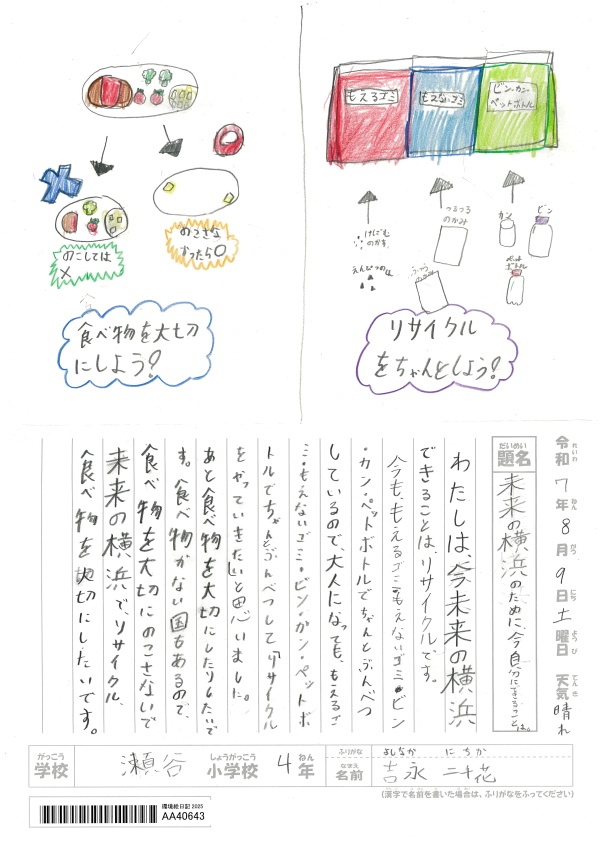 もえるゴミ
もえないゴミ
ビン・カン・
ペットボトル
のこしては
×
のこさな
かったら○
けしごむ
のかす
えんぴつの
つるつる
のかみ
ふくろ
カン
ビン
ペット
ボトル
食べ物を大切
にしよう!
リサイクル
をちゃんとしよう!
令和7年8月9日土曜日 天気 晴れ
れいわ ねん がつ にち ようび てんき
だいめい
題名
未来の横浜のために、今自分にできることは。
わたしは、今未来の横浜
でできることは、リサイクルです。
今も、もえるゴミ・もえないゴミ・ビン
・カン・ペットボトルでちゃんとぶんべつ
しているので、大人になっても、もえるゴ
ミ・もえないゴミ・ビン・カン・ペットボ
トルでちゃんとぶんべつして「リサイクル
をやっていきたい」と思いました。
あと食べ物を大切にしたりしたいで
す。食べ物がない国もあるので、
食べ物を大切にのこさないで
未来の横浜で、リサイクル、
食べ物を大切にしたいです。
がっこう しょうがっこう ねん
学校 瀬谷 小学校 4年
ふりがな よしなが にちか
なまえ
名前 吉永 二千花
(漢字で名前を書いた場合は、ふりがなをふってください)
環境絵日記 2025
AA40643